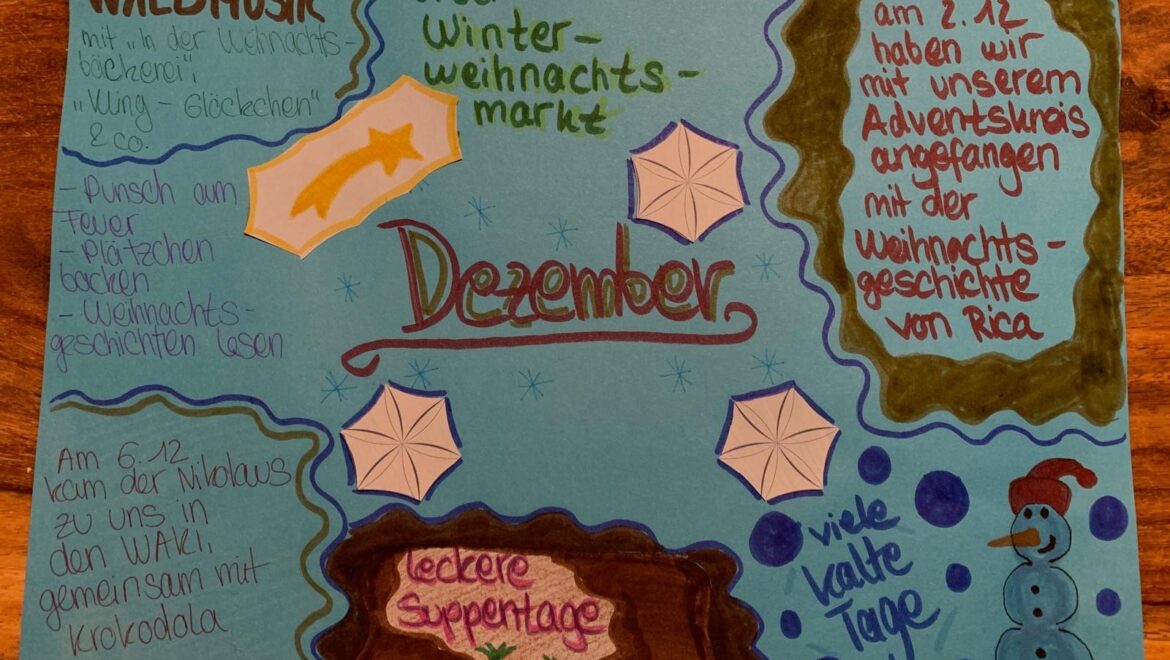 WALDMUSIK
mit „In der Weihnachts-
bäckerei",
„Kling - Glöckchen"
& co.
- Punsch am
Feuer
- Plätzchen
backen
- Weihnachts-
geschichten lesen
Am 6.12
kam der Nikolaus
zu uns in
den WAKI,
gemeinsam mit
Krokodola
Winter-
weihnachts-
markt
Dezember
leckere
Suppentage
am 2.12
haben wir
mit unserem
Adventskreis
angefangen
mit der
Weihnachts-
geschichte
von Rica
viele
kalte
Tage